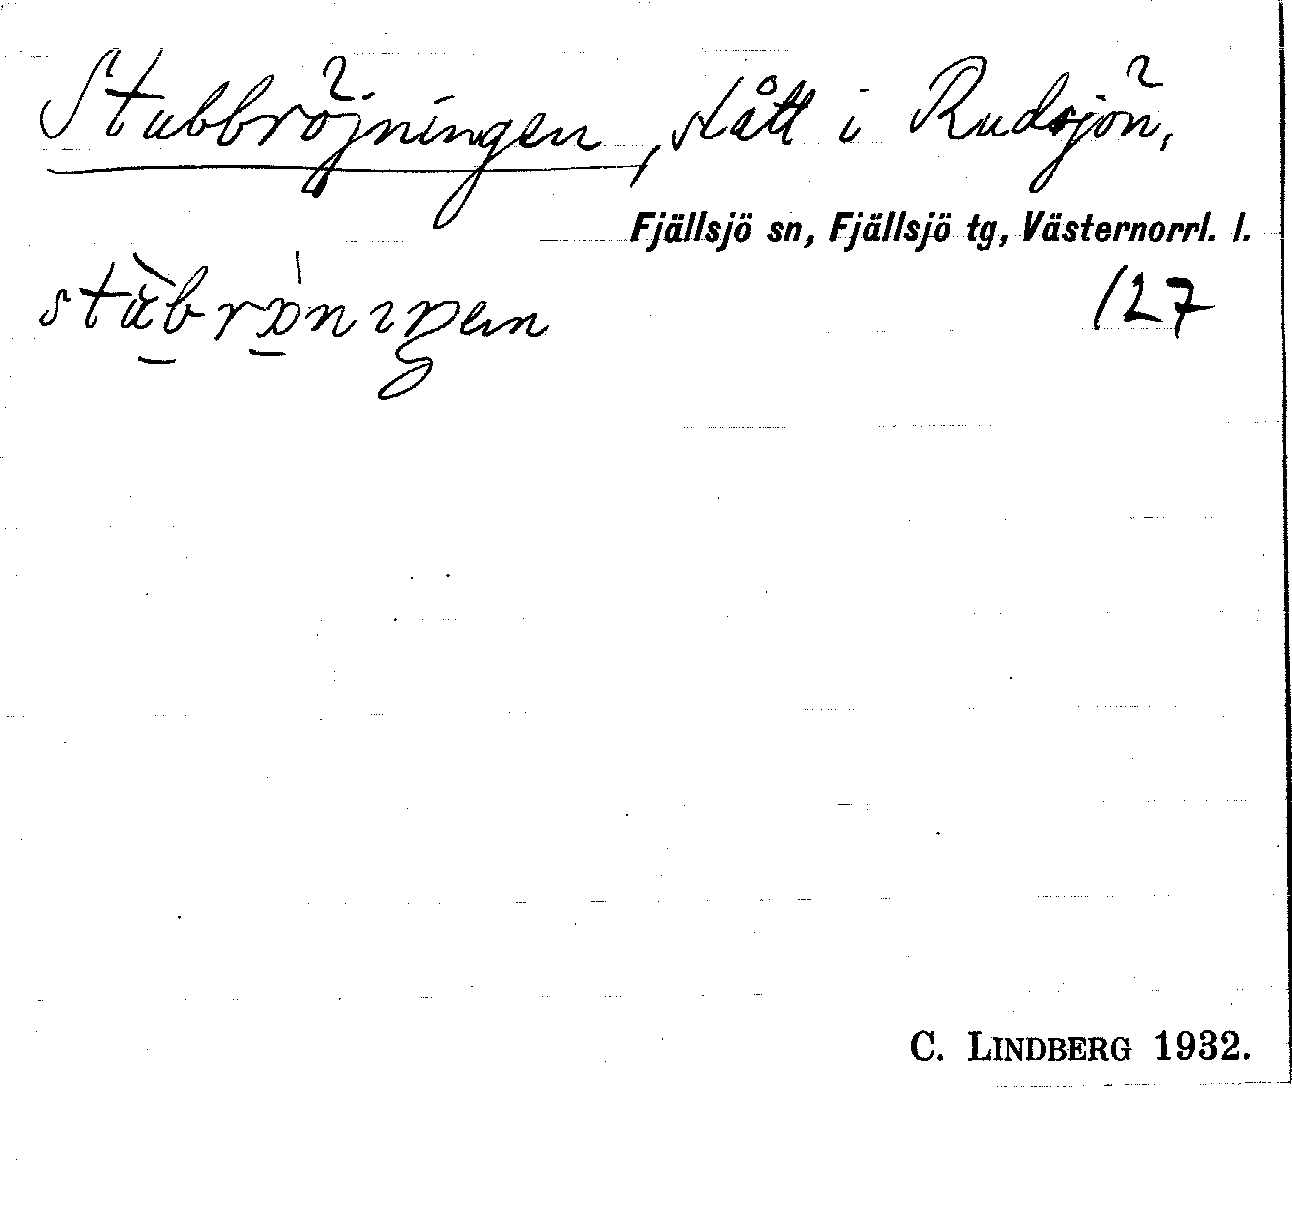 Stubbröjningen, slått i Rudsjön,
Fjällsjö sn, Fjällsjö tg, Västernorrl. l.
127
C. LINDBERG 1932.